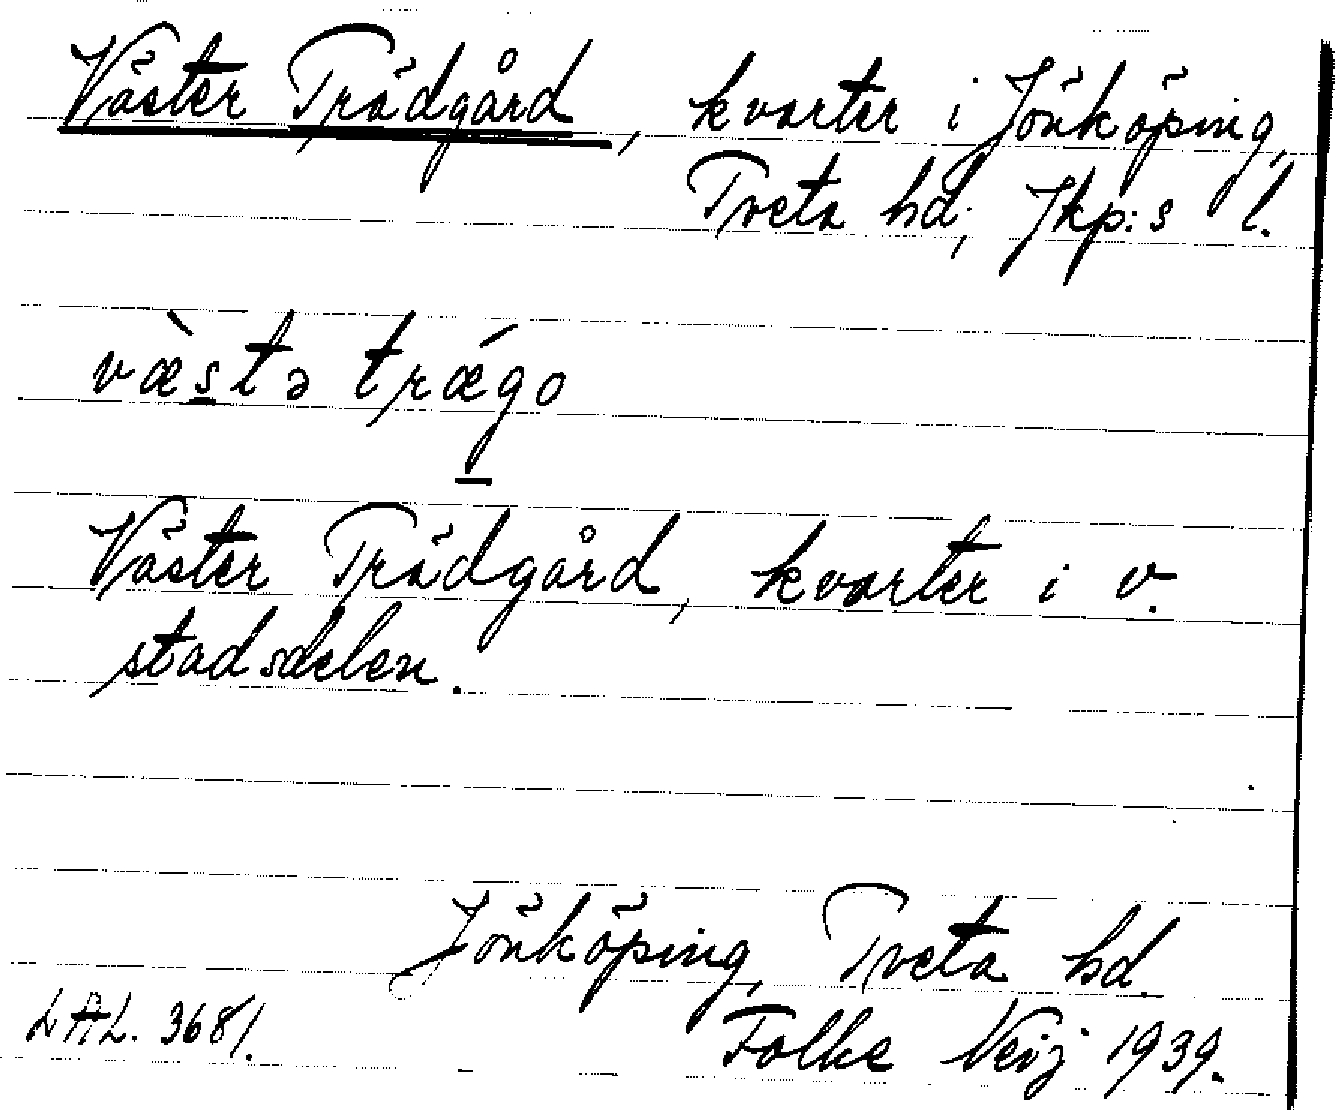 Väster Trädgård, kvarter i Jönköping,
Tveta hd, Jkp:s l.
væ̀stə trǽgo
Väster Trädgård, kvarter i v.
stadsdelen.
Jönköping, Tveta hd.
LAL. 3681.
Folke Neij 1939.